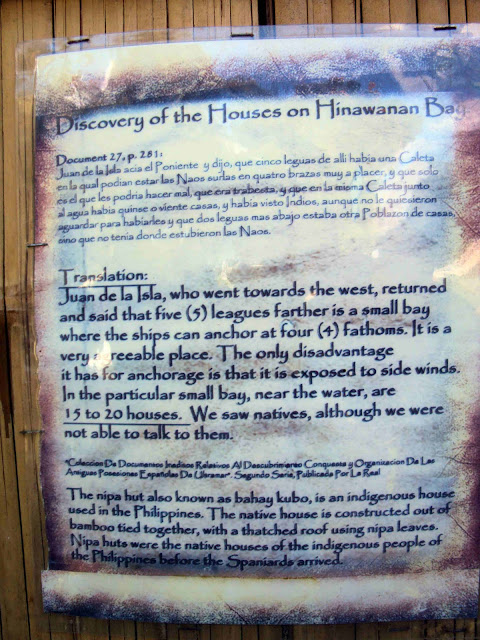 Discovery of the Houses on Hinawanan Bay
Document 27, p. 281:
Juan de la Isla acia el Poniente y dijo, que cinco leguas de alli habia una Caleta
en la qual podian estar las Naos surlas en quatro brazas muy a placer, y que solo
es el que les podria hacer mal, que era trabesta, y que en la misma Caleta junto
al agua habia quinse o viente casas, y habia visto Indios, aunque no le quiesieron
aguardar para habiarles y que dos leguas mas abajo estaba otra Poblazon de casas,
sino que no tenia donde estubieron las Naos.
Translation:
Juan de la Isla, who went towards the west, returned
and said that five (5) leagues farther is a small bay
where the ships can anchor at four (4) fathoms. It is a
very agreeable place. The only disadvantage
it has for anchorage is that it is exposed to side winds.
In the particular small bay, near the water, are
15 to 20 houses. We saw natives, although we were
not able to talk to them.
"Coleccion De Documentos Ineditos Relativos Al Descubrimiento Conquesta y Organizacion De Las
Antiguas Posesiones Españolas De Ultramar". Segundo Serie, Publicada Por La Real
The nipa hut also known as bahay kubo, is an indigenous house
used in the Philippines. The native house is constructed out of
bamboo tied together, with a thatched roof using nipa leaves.
Nipa huts were the native houses of the indigenous people of
the Philippines before the Spaniards arrived.